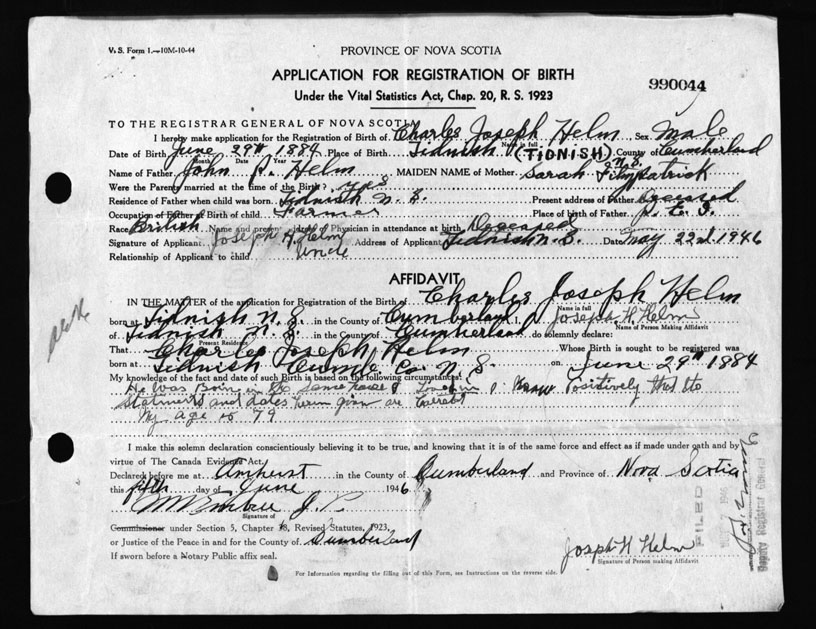 V. S. Form 1.—10M-10-44
PROVINCE OF NOVA SCOTIA
APPLICATION FOR REGISTRATION OF BIRTH
990044
Under the Vital Statistics Act, Chap. 20, R. S. 1923
TO THE REGISTRAR GENERAL OF NOVA SCOTIA
I hereby make application for the Registration of Birth of Charles Joseph Helm Sex Male
Name in full
Date of Birth June 29th 1884 Place of Birth Tidnish (TIDNISH) County of Cumberland
Month Date Year N.S.
Name of Father John Helm MAIDEN NAME of Mother Sarah Fitzpatrick
Were the Parents married at the time of the Birth? yes
Residence of Father when child was born Tidnish N. S. Present address of Father Deceased
Occupation of Father at Birth of child Farmer Place of birth of Father P. E. I.
Race British Name and present address of Physician in attendance at birth Deceased
Signature of Applicant Joseph H. Helm Address of Applicant Tidnish N. S. Date May 22nd 1946
Relationship of Applicant to child Uncle
AFFIDAVIT
IN THE MATTER of the application for Registration of the Birth of Charles Joseph Helm
Name in full
born at Tidnish N. S. in the County of Cumberland I, Joseph H Helm
Name of Person Making Affidavit
of Tidnish N. S. in the County of Cumberland do solemnly declare:
Present Residence
That Charles Joseph Helm Whose Birth is sought to be registered was
born at Tidnish Cumb Co. N. S. on June 29th 1884
My knowledge of the fact and date of such Birth is based on the following circumstances:
He Was Born in the same house I I Know Positively that the
Statments and dates given are Correct
My age is 79
I make this solemn declaration conscientiously believing it to be true, and knowing that it is of the same force and effect as if made under oath and by
virtue of The Canada Evidence Act.
Declared before me at Amherst in the County of Cumberland and Province of Nova Scotia
this fifth day of June 1946
J. P.
Signature of
Commissioner under Section 5, Chapter 18, Revised Statutes, 1923,
or Justice of the Peace in and for the County of Cumberland
If sworn before a Notary Public affix seal.
Joseph H Helm
Signature of Person making Affidavit
FILED
Deputy Registrar General
For Information regarding the filling out of this Form, see Instructions on the reverse side.